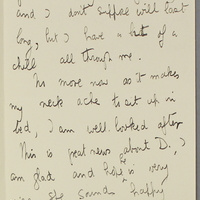 and I don't suppose will last
long, but I have a bit of a
chill all through me.
No more now as it makes
my neck ache to sit up in
bed, I am well looked after
This is great news about D., I
am glad and hope is very
she sounds happy